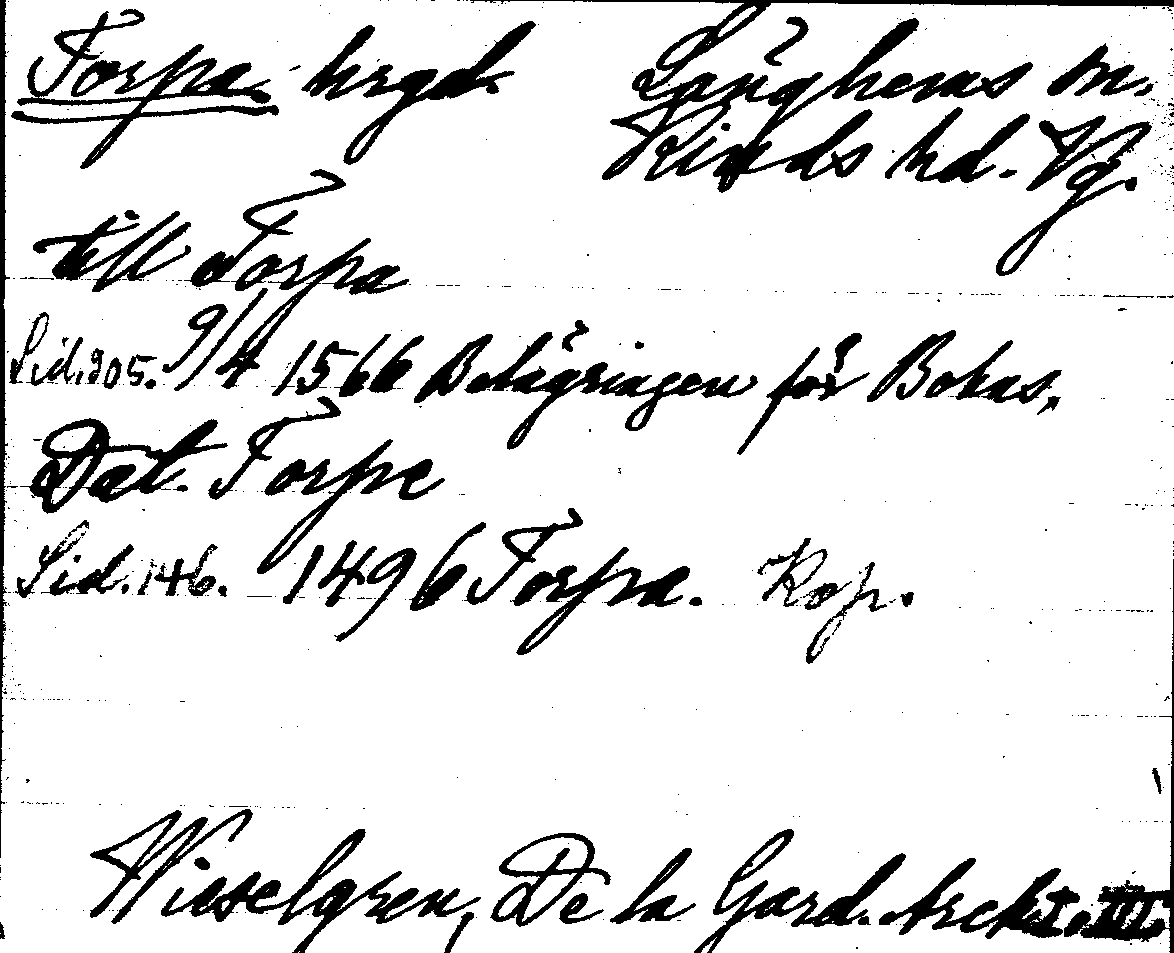 Torpa. hrgd. Länghems sn.
Kinds hd. Vg.
till Torpa
Sid. 205. 9/4 1566 Belägringen för Bohus.
Dat. Torpe
Sid. 146. 1496 Torpa. Kop.
Wieselgren, De la Gard. Arch. I.